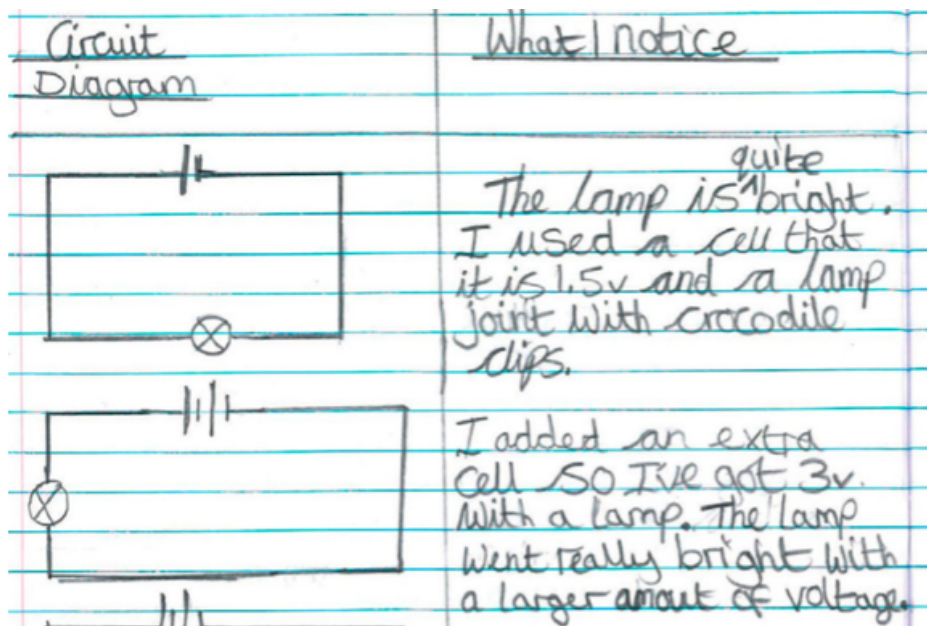 Circuit
Diagram
What I notice
quite
The lamp is ^ bright.
I used a cell that
it is 1.5v and a lamp
joint with crocodile
clips.
I added an extra
cell so I've got 3v.
With a lamp. The lamp
went really bright with
a larger amout of voltage.